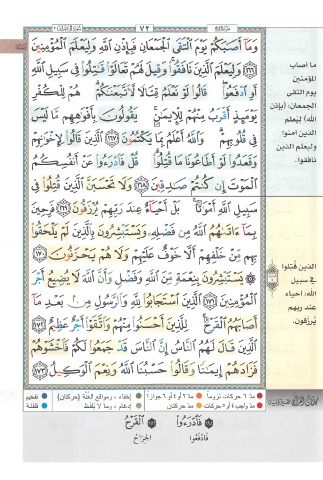 ٧٢
وَمَآ أَصَٰبَكُمْ يَوْمَ ٱلْتَقَى ٱلْجَمْعَانِ فَبِإِذْنِ ٱللَّهِ وَلِيَعْلَمَ ٱلْمُؤْمِنِينَ
﴿١٦٦﴾ وَلِيَعْلَمَ ٱلَّذِينَ نَافَقُوا۟ وَقِيلَ لَهُمْ تَعَالَوْا۟ قَٰتِلُوا۟ فِى سَبِيلِ ٱللَّهِ
أَوِ ٱدْفَعُوا۟ قَالُوا۟ لَوْ نَعْلَمُ قِتَالًا لَّٱتَّبَعْنَٰكُمْ هُمْ لِلْكُفْرِ
يَوْمَئِذٍ أَقْرَبُ مِنْهُمْ لِلْإِيمَٰنِ يَقُولُونَ بِأَفْوَٰهِهِم مَّا لَيْسَ
فِى قُلُوبِهِمْ وَٱللَّهُ أَعْلَمُ بِمَا يَكْتُمُونَ ﴿١٦٧﴾ ٱلَّذِينَ قَالُوا۟ لِإِخْوَٰنِهِمْ
وَقَعَدُوا۟ لَوْ أَطَاعُونَا مَا قُتِلُوا۟ قُلْ فَٱدْرَءُوا۟ عَنْ أَنفُسِكُمُ
ٱلْمَوْتَ إِن كُنتُمْ صَٰدِقِينَ ﴿١٦٨﴾ وَلَا تَحْسَبَنَّ ٱلَّذِينَ قُتِلُوا۟ فِى
سَبِيلِ ٱللَّهِ أَمْوَٰتًۢا بَلْ أَحْيَآءٌ عِندَ رَبِّهِمْ يُرْزَقُونَ ﴿١٦٩﴾ فَرِحِينَ
بِمَآ ءَاتَىٰهُمُ ٱللَّهُ مِن فَضْلِهِۦ وَيَسْتَبْشِرُونَ بِٱلَّذِينَ لَمْ يَلْحَقُوا۟
بِهِم مِّنْ خَلْفِهِمْ أَلَّا خَوْفٌ عَلَيْهِمْ وَلَا هُمْ يَحْزَنُونَ ﴿١٧٠﴾
يَسْتَبْشِرُونَ بِنِعْمَةٍ مِّنَ ٱللَّهِ وَفَضْلٍ وَأَنَّ ٱللَّهَ لَا يُضِيعُ أَجْرَ
ٱلْمُؤْمِنِينَ ﴿١٧١﴾ ٱلَّذِينَ ٱسْتَجَابُوا۟ لِلَّهِ وَٱلرَّسُولِ مِنۢ بَعْدِ مَآ
أَصَابَهُمُ ٱلْقَرْحُ لِلَّذِينَ أَحْسَنُوا۟ مِنْهُمْ وَٱتَّقَوْا۟ أَجْرٌ عَظِيمٌ ﴿١٧٢﴾
ٱلَّذِينَ قَالَ لَهُمُ ٱلنَّاسُ إِنَّ ٱلنَّاسَ قَدْ جَمَعُوا۟ لَكُمْ فَٱخْشَوْهُمْ
فَزَادَهُمْ إِيمَٰنًا وَقَالُوا۟ حَسْبُنَا ٱللَّهُ وَنِعْمَ ٱلْوَكِيلُ ﴿١٧٣﴾
ما اصاب
المؤمنين
يوم التقى
الجمعان: (بإذن
الله) ليعلم
الذين امنوا
وليعلم الذين
نافقوا.
الذين قُتلوا
في سبيل
الله: احياء
عند ربهم
يُرزقون.
مدّ ٦ حركات لزوماً
مدّ ٢ أو ٤ أو ٦ جوازاً
إخفاء، ومواقع الغُنَّة (حركتان)
تفخيم
مدّ واجب ٤ أو ٥ حركات
مدّ حركتان
إدغام، وما لا يُلفَظ
قلقلة
فَٱدْرَءُوا۟
فَادْفَعُوا
ٱلْقَرْحُ
الجِرَاحُ